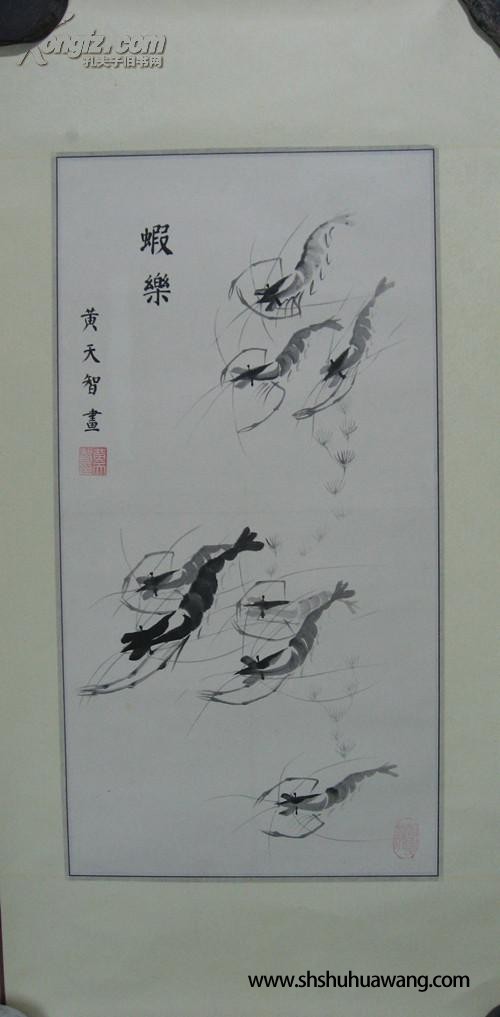 Kongfz.com
孔夫子旧书网
蝦樂
黄天智畫
www.shshuhuawang.com